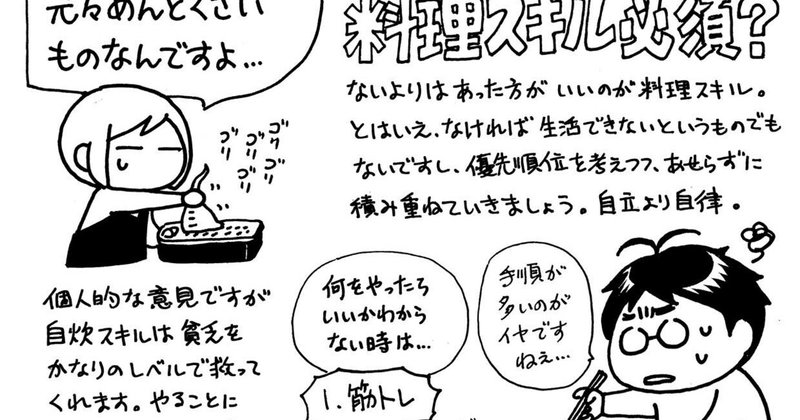 元々めんどくさい
ものなんですよ…
料理スキル必須?
ないよりは あった方が いいのが 料理スキル。
とはいえ、なければ 生活できないというものでも
ないですし、優先順位を考えつつ、あせらずに
積み重ねていきましょう。自立より自律。
ゴリ
ゴリ
ゴリ
ゴリ
個人的な意見ですが
自炊スキルは貧乏を
かなりのレベルで救って
くれます。やることに
何をやったら
いいかわから
ない時は…
1. 筋トレ
手順が
多いのが
イヤです
ねぇ…